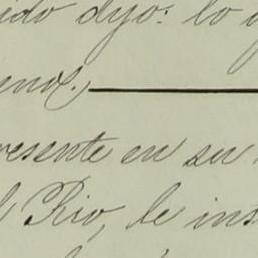 ido dijo: lo
enos.
resente en su
l Rio, le ins